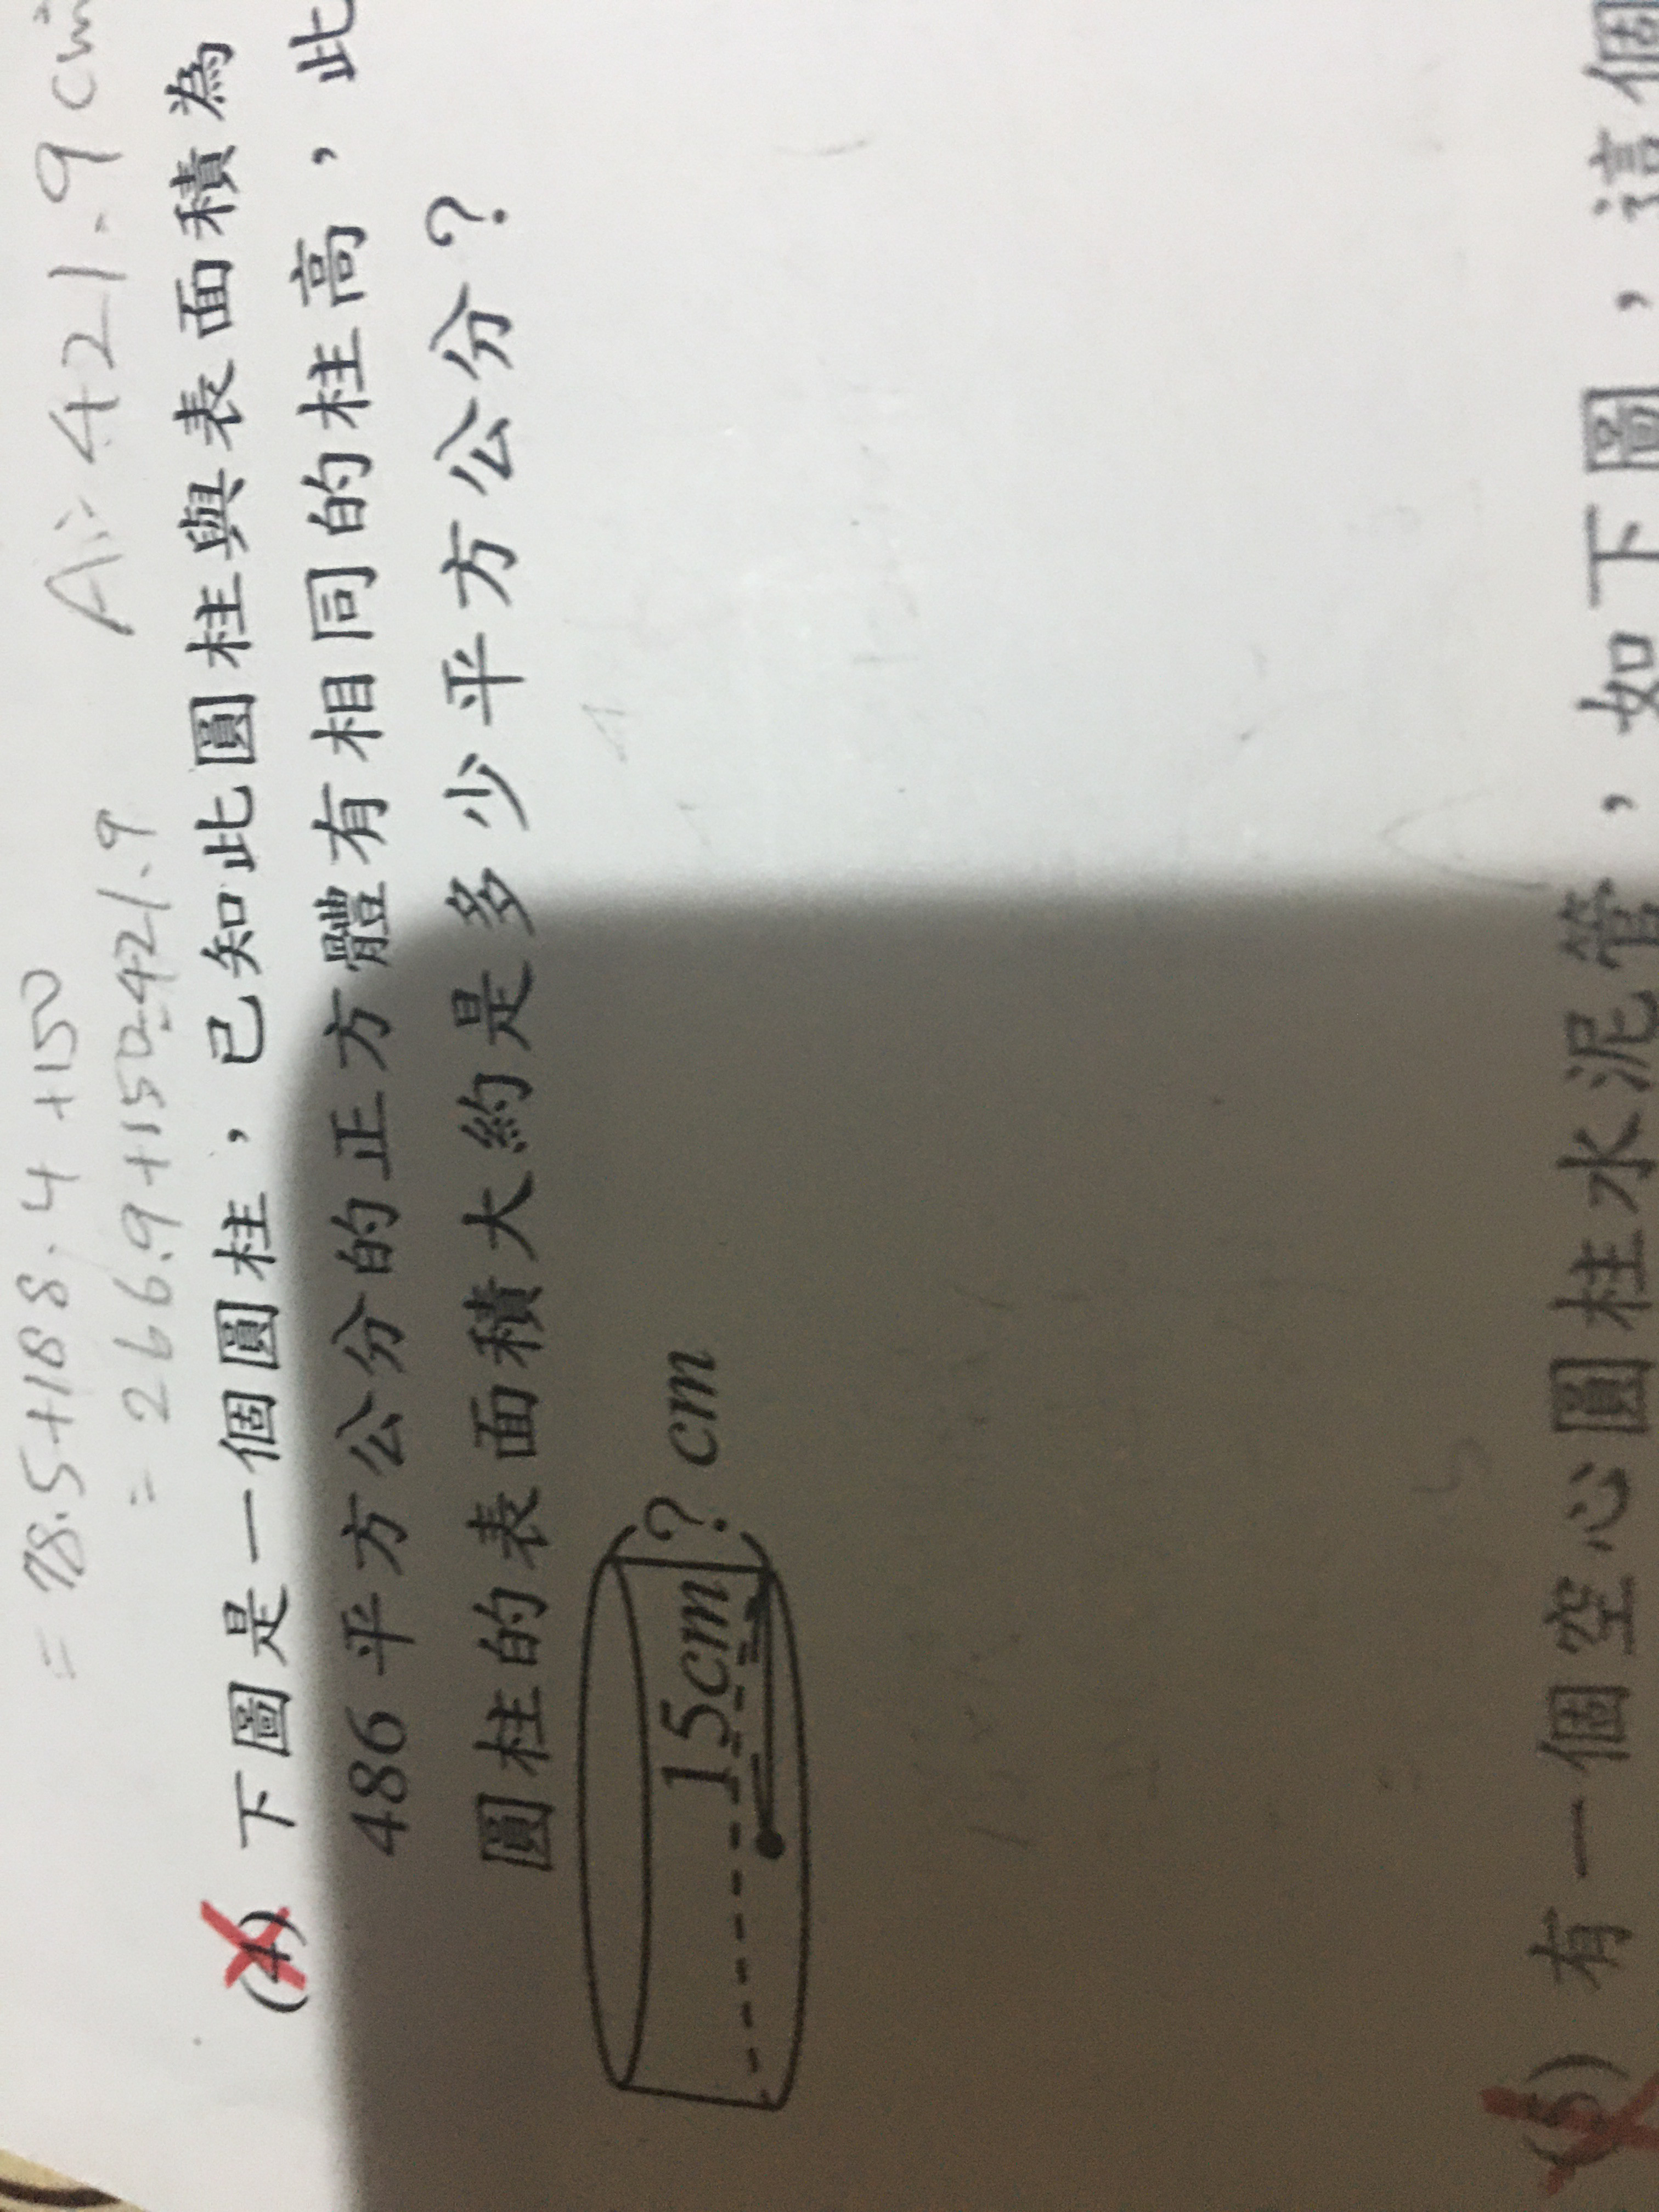 = 78.5+188.4+150
= 266.9+150=421.9
A:421.9
(4) 下圖是一個圓柱,已知此圓柱與表面積為
486平方公分的正方體有相同的柱高,此
圓柱的表面積大約是多少平方公分?
15cm
? cm
(5) 有一個空心圓柱水泥管,如下圖,這個